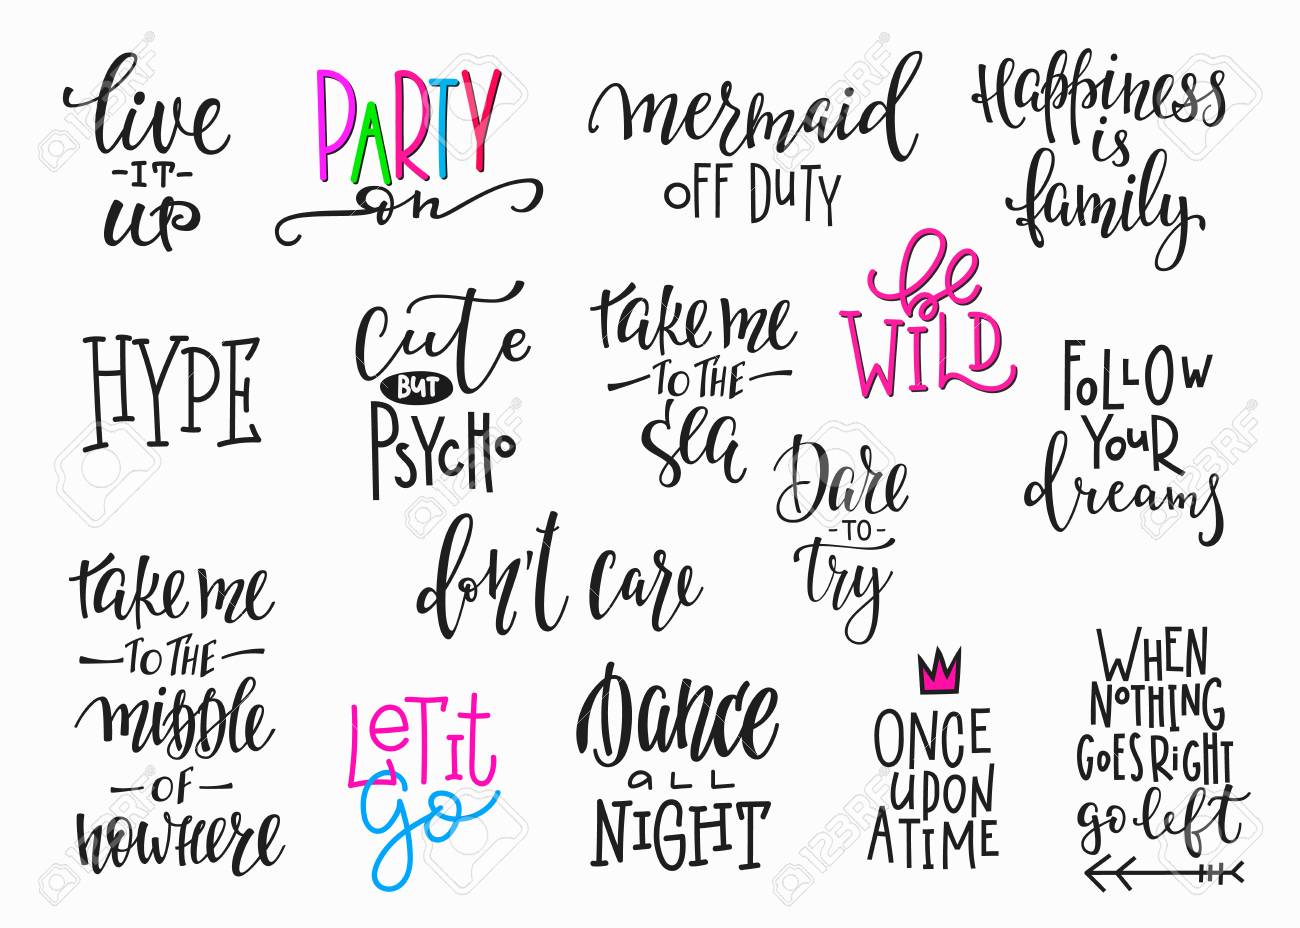 live
-IT-
up
PARTY
on
mermaid
OFF DUTY
Happiness
is
family
HYPE
cute
BUT
PSYCHO
take me
TO THE
sea
be
WILD
FOLLOW
YOUR
dreams
Dare
-TO-
try
don't care
take me
TO THE
middle
OF
nowhere
LET it
go
Dance
ALL
NIGHT
ONCE
UPON
A TIME
WHEN
NOTHING
GOES RiGHT
go left
123RF
123RF
123RF
123RF
123RF
123RF
123RF
123RF
123RF